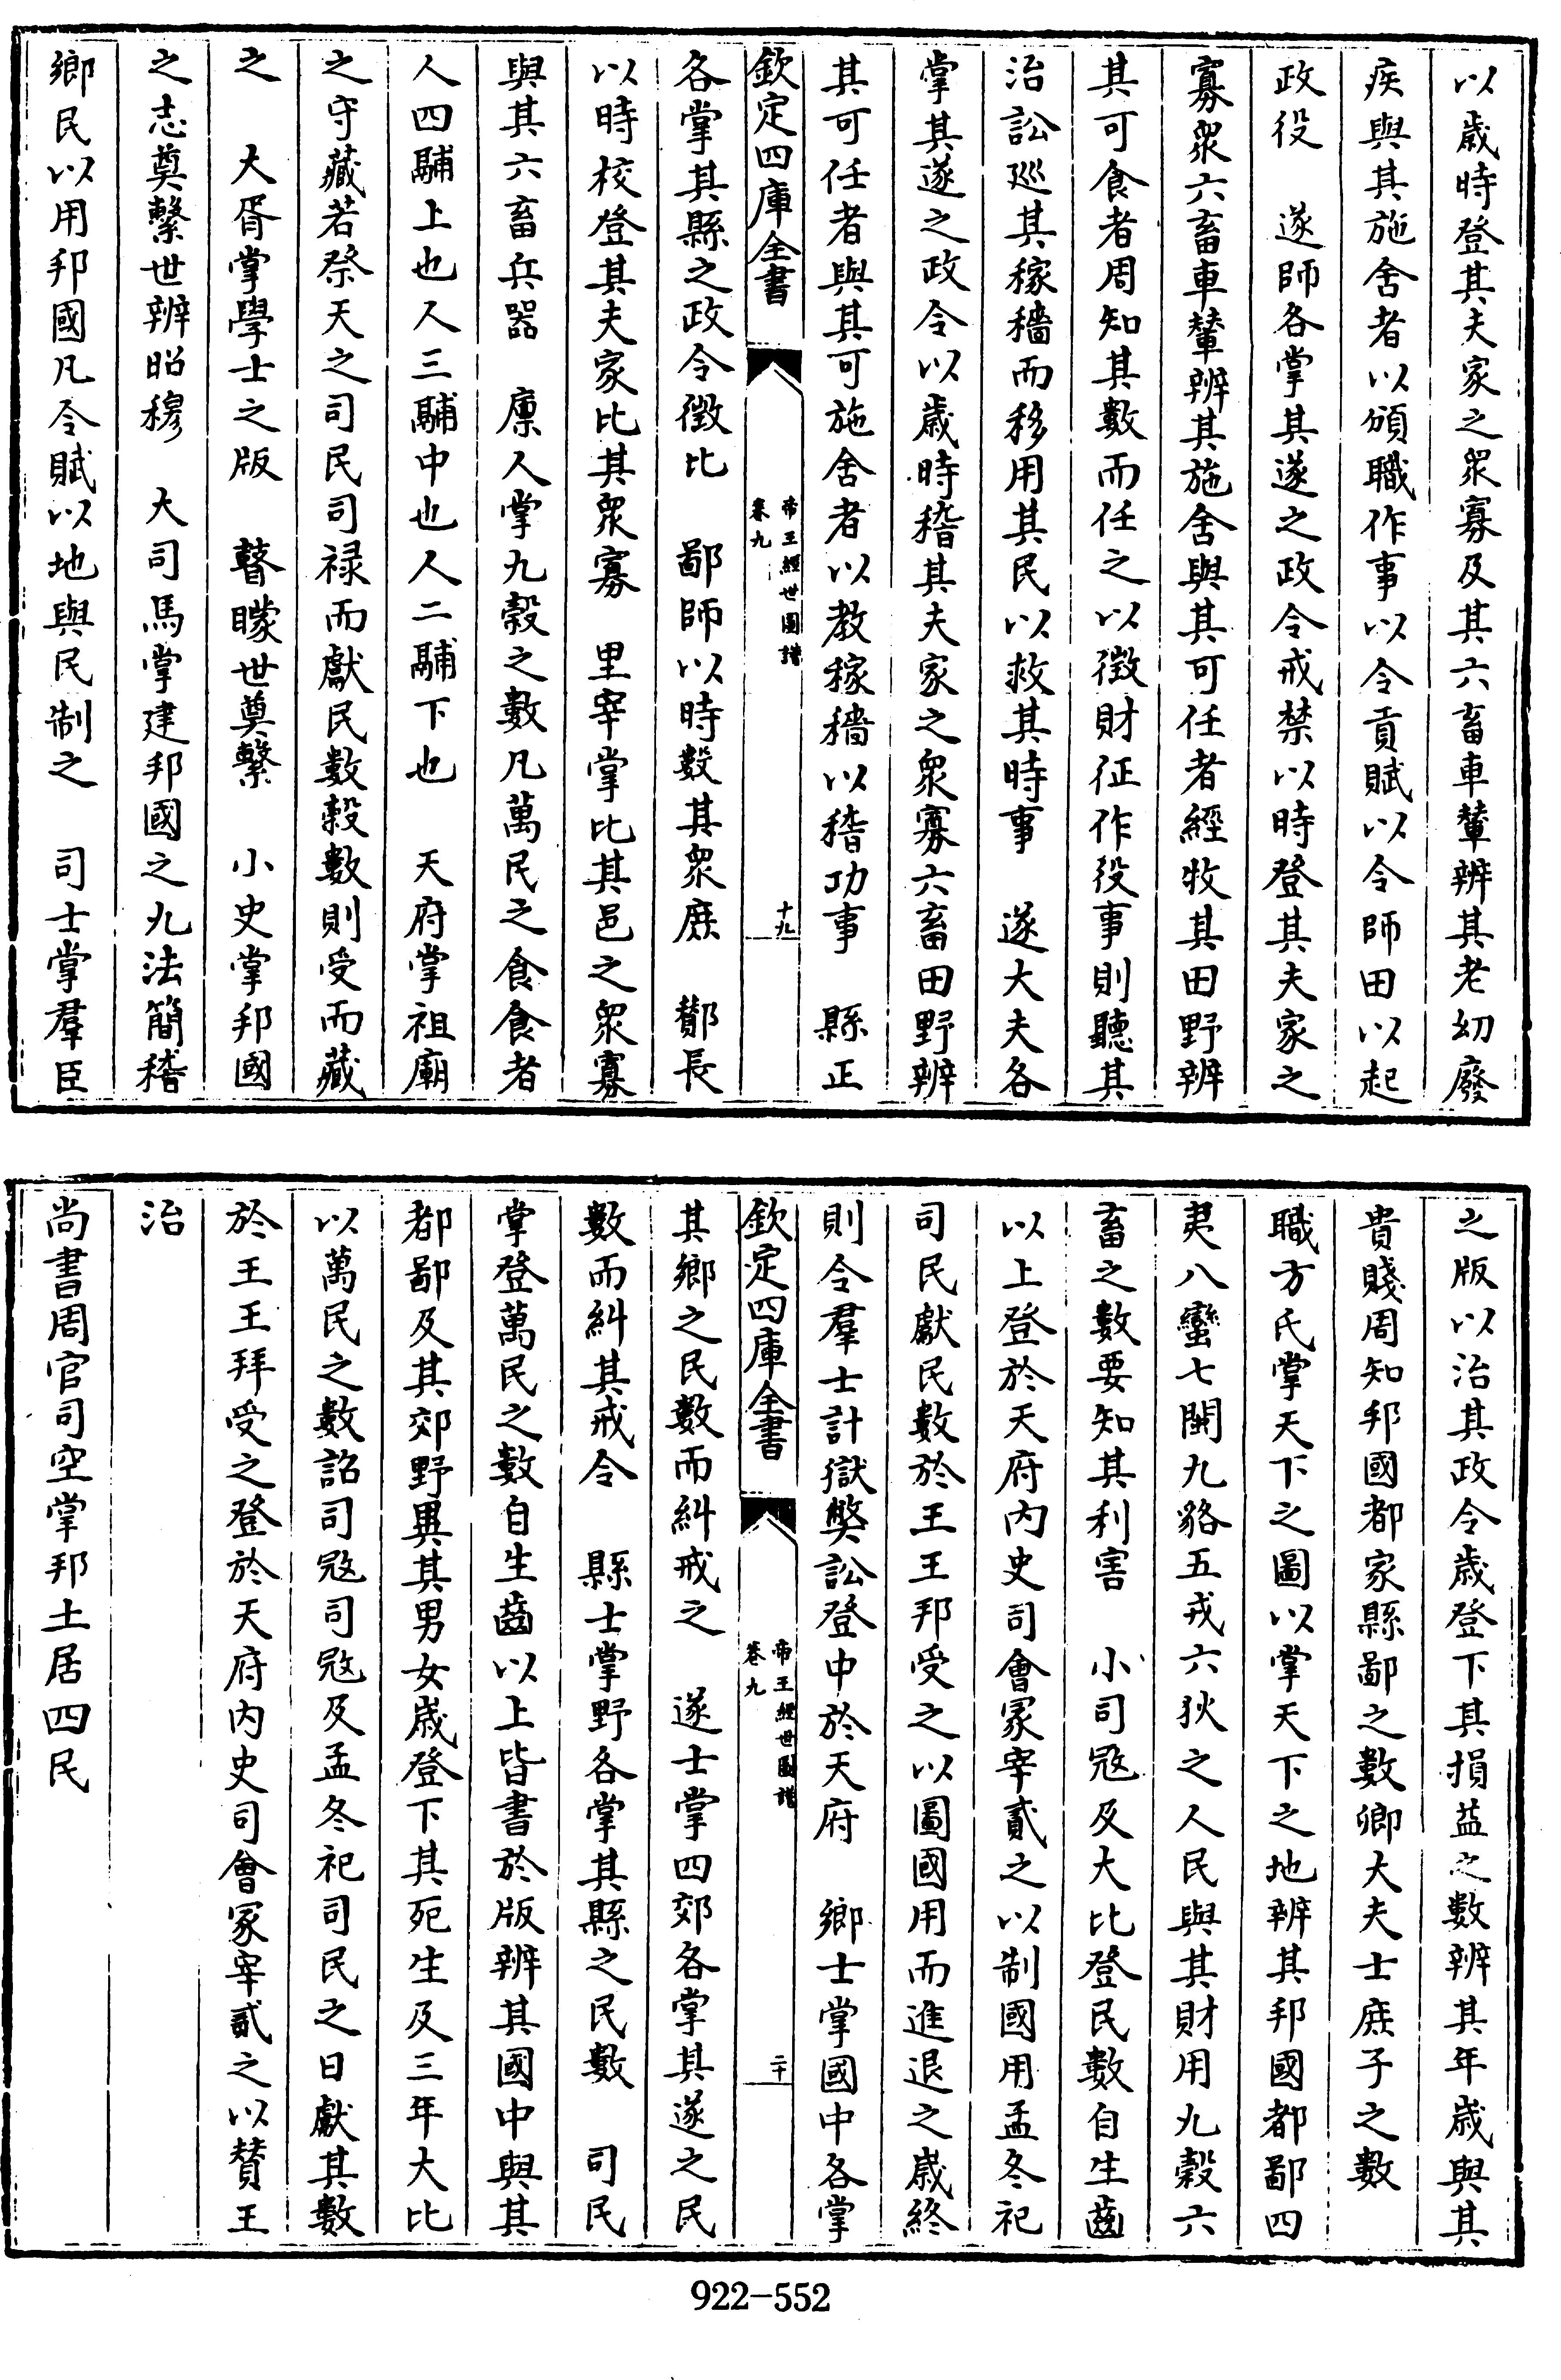 以歲時登其夫家之衆寡及其六畜車輦辨其老幼廢
疾與其施舍者以頒職作事以令貢賦以令師田以起
政役　遂師各掌其遂之政令戒禁以時登其夫家之
寡衆六畜車輦辨其施舍與其可任者經牧其田野辨
其可食者周知其數而任之以徴財征作役事則聽其
治訟廵其稼穡而移用其民以救其時事　遂大夫各
掌其遂之政令以歲時稽其夫家之衆寡六畜田野辨
其可任者與其可施舍者以教稼穡以稽功事　縣正
欽定四庫全書　帝王經世圖譜　卷九　十九
各掌其縣之政令徴比　鄙師以時數其衆庶　鄼長
以時校登其夫家比其衆寡　里宰掌比其邑之衆寡
與其六畜兵器　廩人掌九穀之數凡萬民之食食者
人四鬴上也人三鬴中也人二鬴下也　天府掌祖廟
之守藏若祭天之司民司禄而獻民數穀數則受而藏
之　大胥掌學士之版　瞽矇世奠繫　小史掌邦國
之志奠繫世辨昭穆　大司馬掌建邦國之九法簡稽
鄉民以用邦國凡令賦以地與民制之　司士掌羣臣
之版以治其政令歲登下其損益之數辨其年歲與其
貴賤周知邦國都家縣鄙之數卿大夫士庶子之數
職方氏掌天下之圖以掌天下之地辨其邦國都鄙四
夷八蠻七閩九貉五戎六狄之人民與其財用九穀六
畜之數要知其利害　小司冦及大比登民數自生齒
以上登於天府内史司會冢宰貳之以制國用孟冬祀
司民獻民數於王王邦受之以圖國用而進退之歲終
則令羣士計獄弊訟登中於天府　鄉士掌國中各掌
欽定四庫全書　帝王經世圖譜　卷九　二十
其鄉之民數而糾戒之　遂士掌四郊各掌其遂之民
數而糾其戒令　縣士掌野各掌其縣之民數　司民
掌登萬民之數自生齒以上皆書於版辨其國中與其
都鄙及其郊野異其男女歲登下其死生及三年大比
以萬民之數詔司冦司冦及孟冬祀司民之日獻其數
於王王拜受之登於天府内史司會冢宰貳之以贊王
治
尚書周官司空掌邦土居四民
922-552